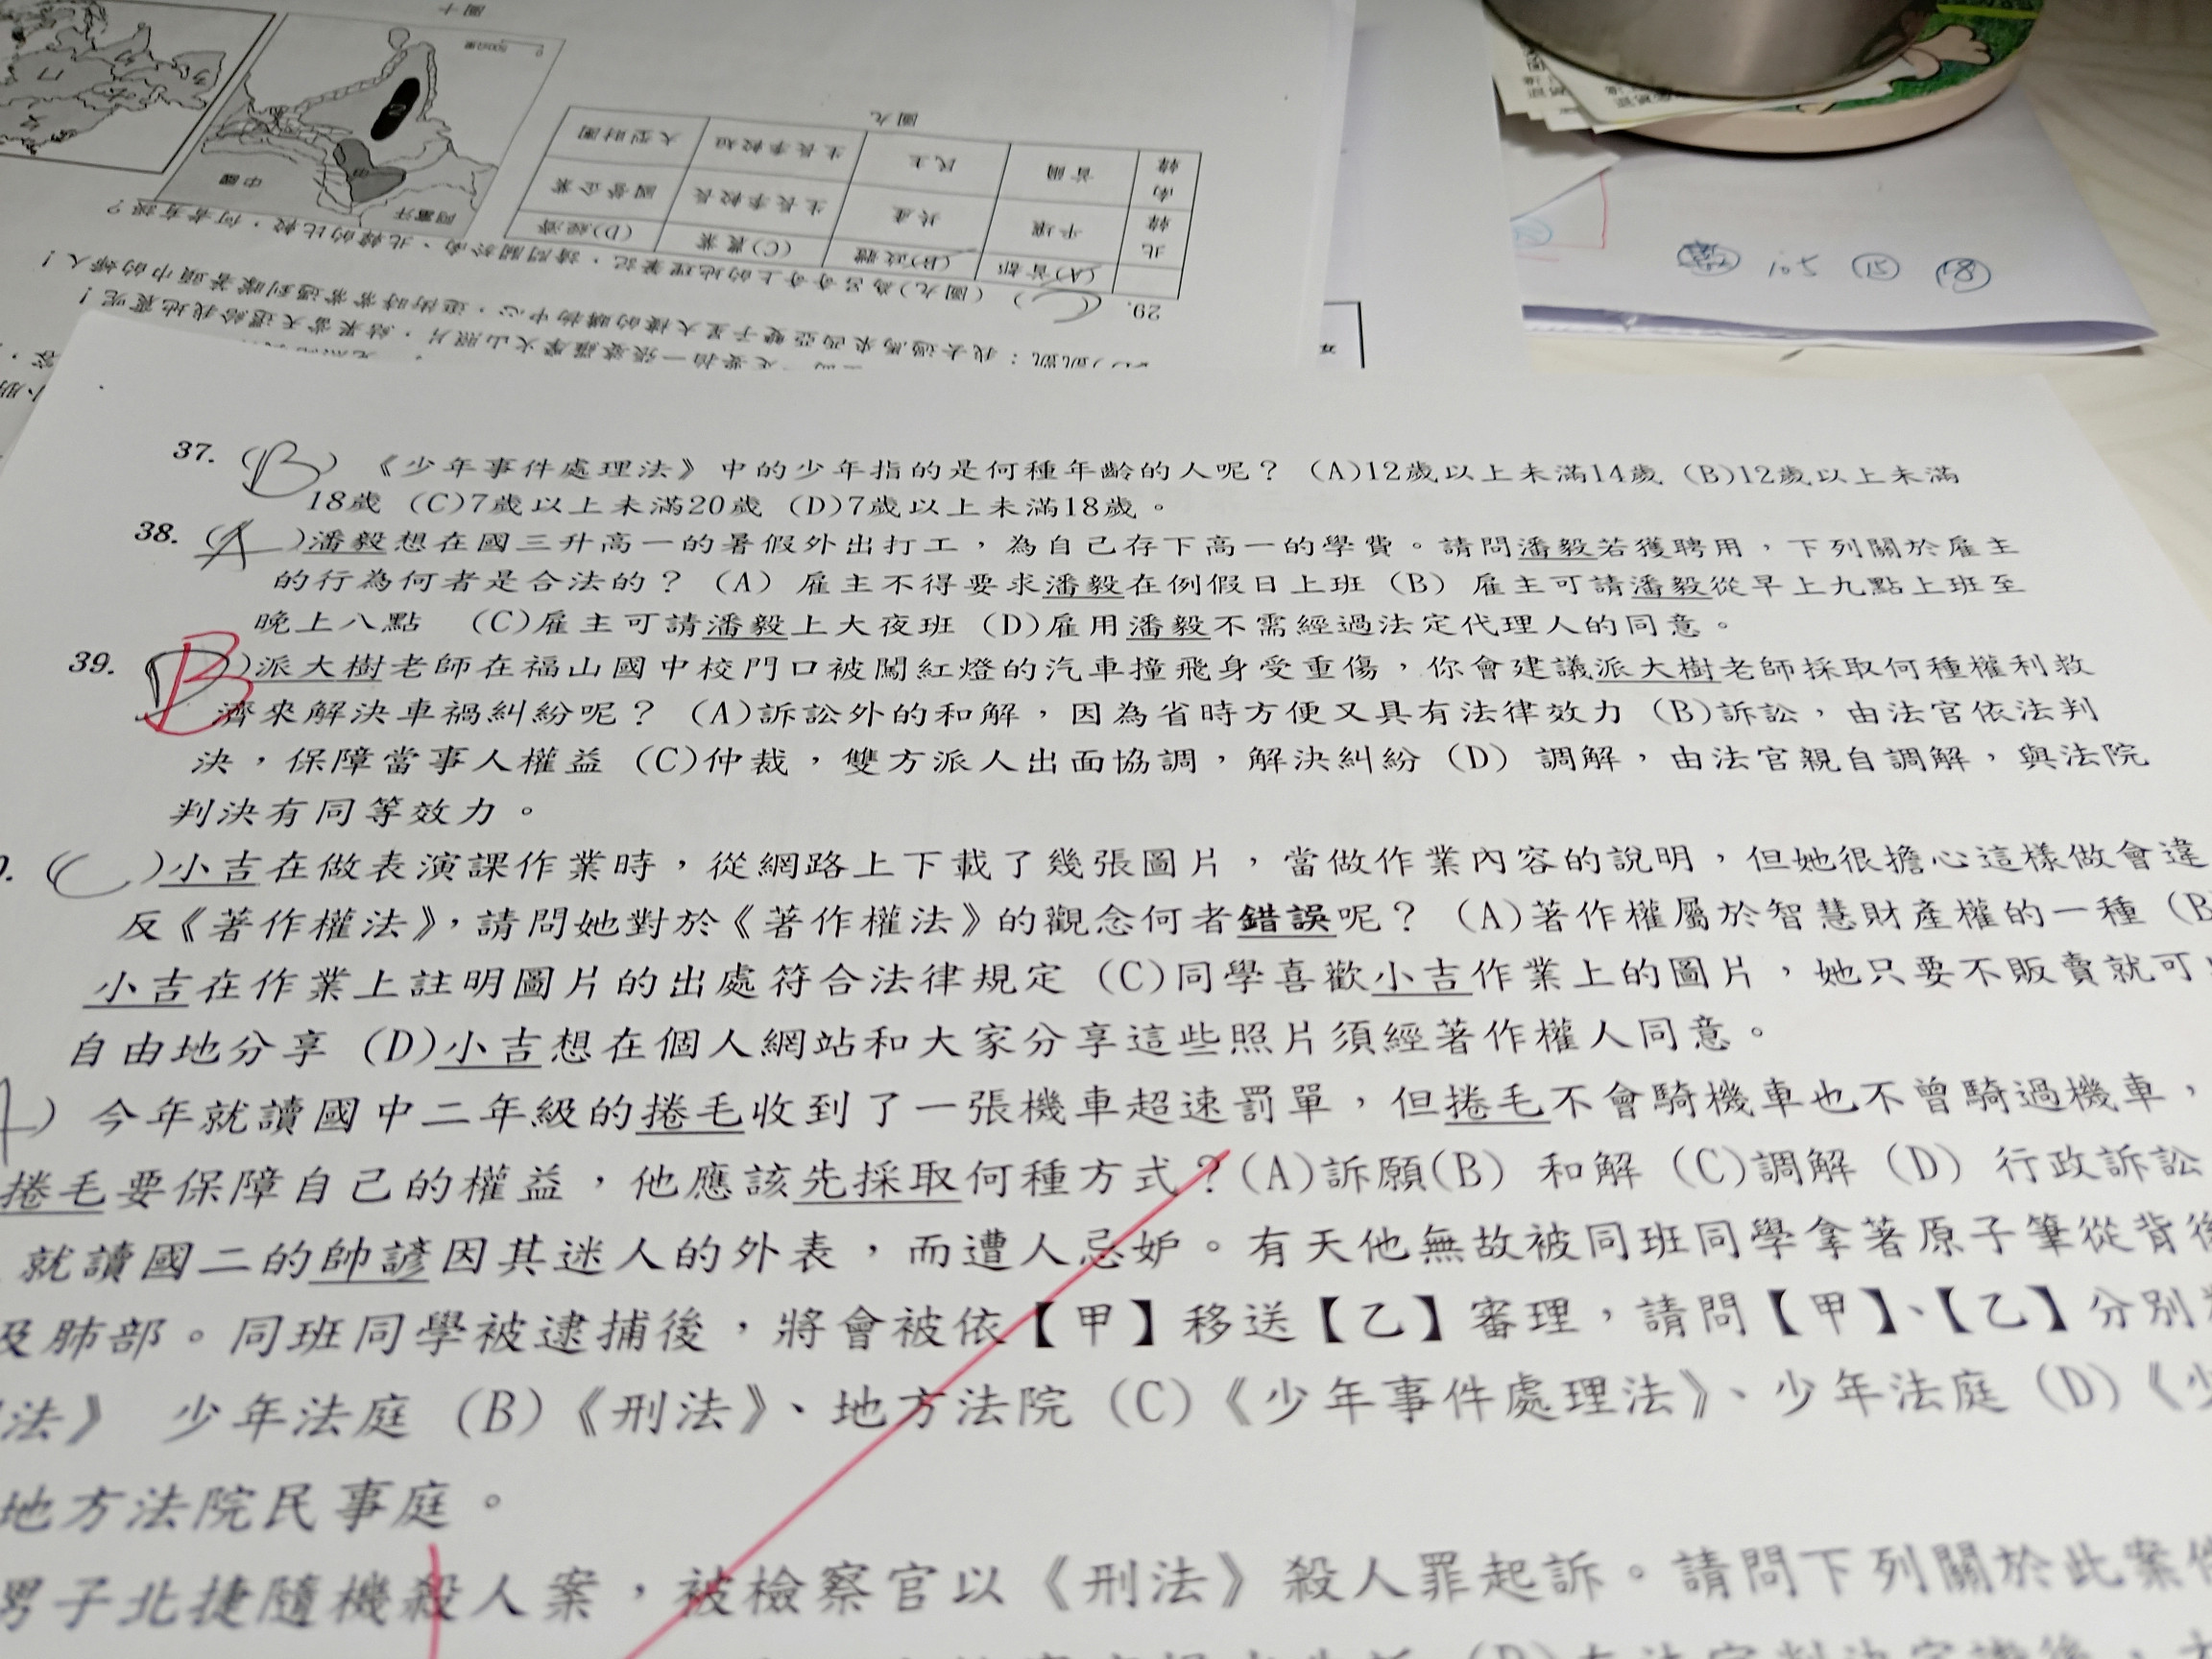 圖十
500公里
中國
阿富汗
圖九
北韓 南韓
(A)首都 平壤 首爾
(B)政體 共產 民主
(C)農業 生長季較長 生長季較短
(D)經濟 國營企業 大型財團
29. (C) (圖九)為呂奇奇上的地理筆記,請問關於南、北韓的比較,何者有誤?
105 15 18
37. (B) 《少年事件處理法》中的少年指的是何種年齡的人呢? (A)12歲以上未滿14歲 (B)12歲以上未滿
18歲 (C)7歲以上未滿20歲 (D)7歲以上未滿18歲。
38. (A)潘毅想在國三升高一的暑假外出打工,為自己存下高一的學費。請問潘毅若獲聘用,下列關於雇主
的行為何者是合法的? (A) 雇主不得要求潘毅在例假日上班 (B) 雇主可請潘毅從早上九點上班至
晚上八點 (C)雇主可請潘毅上大夜班 (D)雇用潘毅不需經過法定代理人的同意。
39. B)派大樹老師在福山國中校門口被闖紅燈的汽車撞飛身受重傷,你會建議派大樹老師採取何種權利救
濟來解決車禍糾紛呢? (A)訴訟外的和解,因為省時方便又具有法律效力 (B)訴訟,由法官依法判
決,保障當事人權益 (C)仲裁,雙方派人出面協調,解決糾紛 (D) 調解,由法官親自調解,與法院
判決有同等效力。
(C)小吉在做表演課作業時,從網路上下載了幾張圖片,當做作業內容的說明,但她很擔心這樣做會違
反《著作權法》,請問她對於《著作權法》的觀念何者錯誤呢? (A)著作權屬於智慧財產權的一種 (B
小吉在作業上註明圖片的出處符合法律規定 (C)同學喜歡小吉作業上的圖片,她只要不販賣就可
自由地分享 (D)小吉想在個人網站和大家分享這些照片須經著作權人同意。
A) 今年就讀國中二年級的捲毛收到了一張機車超速罰單,但捲毛不會騎機車也不曾騎過機車,
捲毛要保障自己的權益,他應該先採取何種方式?(A)訴願(B) 和解 (C)調解 (D) 行政訴訟
就讀國二的帥諺因其迷人的外表,而遭人忌妒。有天他無故被同班同學拿著原子筆從背後
及肺部。同班同學被逮捕後,將會被依【甲】移送【乙】審理,請問【甲】、【乙】分別
法》 少年法庭 (B)《刑法》、地方法院 (C)《少年事件處理法》、少年法庭 (D)《少
地方法院民事庭。
男子北捷隨機殺人案,被檢察官以《刑法》殺人罪起訴。請問下列關於此案